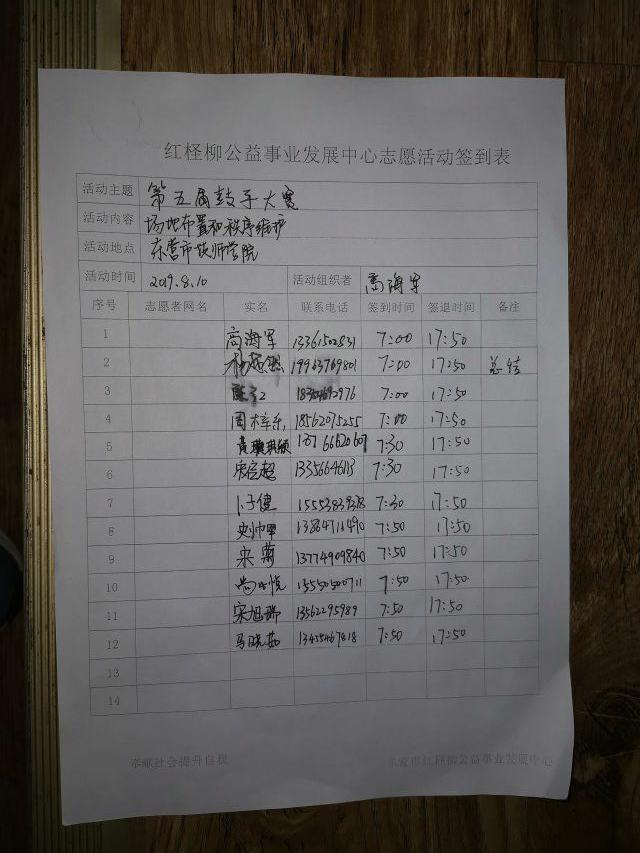 红柽柳公益事业发展中心志愿活动签到表
活动主题 第五届鼓子大赛
活动内容 场地布置和秩序维护
活动地点 东营市技师学院
活动时间 2019.8.10 活动组织者 高海军
序号 志愿者网名 实名 联系电话 签到时间 签退时间 备注
1 高海军 13361502831 7:00 17:50
2 19963769801 7:00 17:50 总结
3 7:00 17:50
4 18562075255 7:00 17:50
5 7:30 17:50
6 13356646113 7:30 17:50
7 卜子健 15553839378 7:30 17:50
8 13864711490 7:50 17:50
9 宋菊 13774909840 7:50 17:50
10 15550500711 7:50 17:50
11 宋旭瑞 13562295989 7:50 17:50
12 马晓茹 13455467818 7:50 17:50
13
14
奉献社会提升自我 东营市红柽柳公益事业发展中心